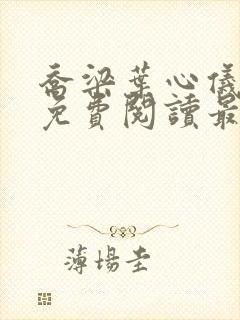 喬梁葉心儀
免費閱讀最
薄場圭